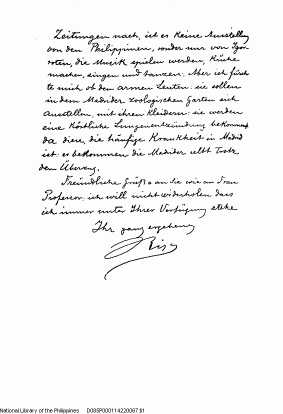 Zeitungen nach, ist es keine Ausstellung
von den Philippinen, sonder nur von Igor-
roten, die Musik spielen werden, Küche
machen, singen und tanzen. Aber ich fürch-
te mich ob den armen Leuten: sie sollen
in dem Madrider zoologischen Garten sich
austellen, mit ihren Kleidern: sie werden
eine Köstliche Lungenentzündung bekommen
da diese, die häufige Krankheit in Madrid
ist: es bekommen die Madrider selbt trotz
dem Überzug.
Freundliche Grüße an Sie wie an Frau
Professor; ich will nicht wiederholen dass
ich immer unter Ihrer Verfügung stehe
Ihr ganz ergebener
Rizal
National Library of the Philippines D085P000114220067.tif